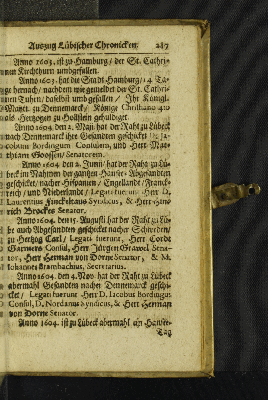 Auszug Lübischer Chronicken/ 287
Anno 1603. ist zu Hamburg/ der St. Cathry-
nnen Kirchthurn umbgefallen.
Anno 1603. hat die Stadt Hamburg/ 14 Ta-
ge hernach/ nachdem wie gemeldet der St. Cathri-
nnen Tuhrn/ daselbst umbgefallen/ Ihr Königl.
Mayet. zu Dennemarck/ Könige Christiano 4to
als Hertzogen zu Holstein gehuldiget.
Anno 1604. den 2. Maji hat der Raht zu Lübeck
nach Dennemarck ihre Gesandten geschickt
cobum Bordingum Consulem, und Herr Mat-
thiam Goossen/ Senatorem.
Anno 1604 den 2. Junii/ hat der Raht zu Lü-
beck im Nahmen der gantzen Hansee Abgesandten
geschicket/ nacher Hispanien/ Engellandt/ Franck-
reich/ und Niderlandt/ Legati fuerunt Herr D.
Laurentius Finckelthaus Syndicus, & Herr Hin-
rich Brockes Senator.
Anno 1604. den 15. Augusti hat der Raht zu Lü-
be auch Abgesandten geschicket nacher Schweden/
zu Hertzog Carl/ Legati fuerunt, Herr Cordt
Garmers Consul, Herr Jürgen Gravel Sena-
tor, Herr Herman von Dorne Senator, & M.
Iohannes Brambachius, Secretarius.
Anno 1604. den 4. Nov. hat der Raht zu Lübeck
abermahl Gesandten nacher Dennemarck geschi-
cket/ Legati fuerunt Herr D. Iacobus Bordingus
Consul, D. Nordanus Syndicus, & Herr Herman
von Dorne Senator.
Anno 1604. ist zu Lübeck abermahl ein Hansee-
Tag